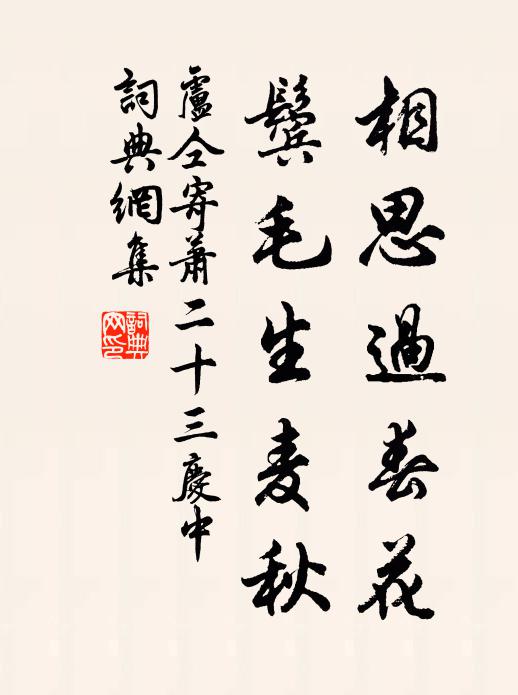 相思過春花
鬢毛生麦秋
盧仝寄蕭二十三慶中
詞典網集
詞典
网印